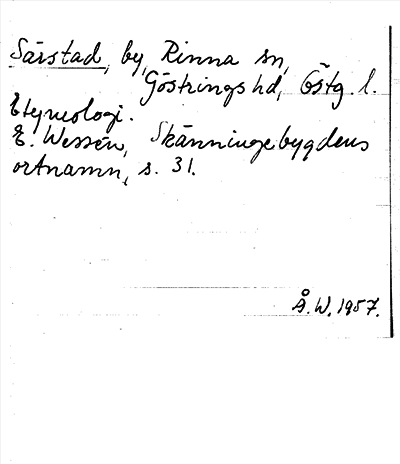 Särstad, by, Rinna sn,
Göstrings hd, Östg. l.
Etymologi.
E. Wessén, Skänningebygdens
ortnamn, s. 31.
Å. W. 1957.